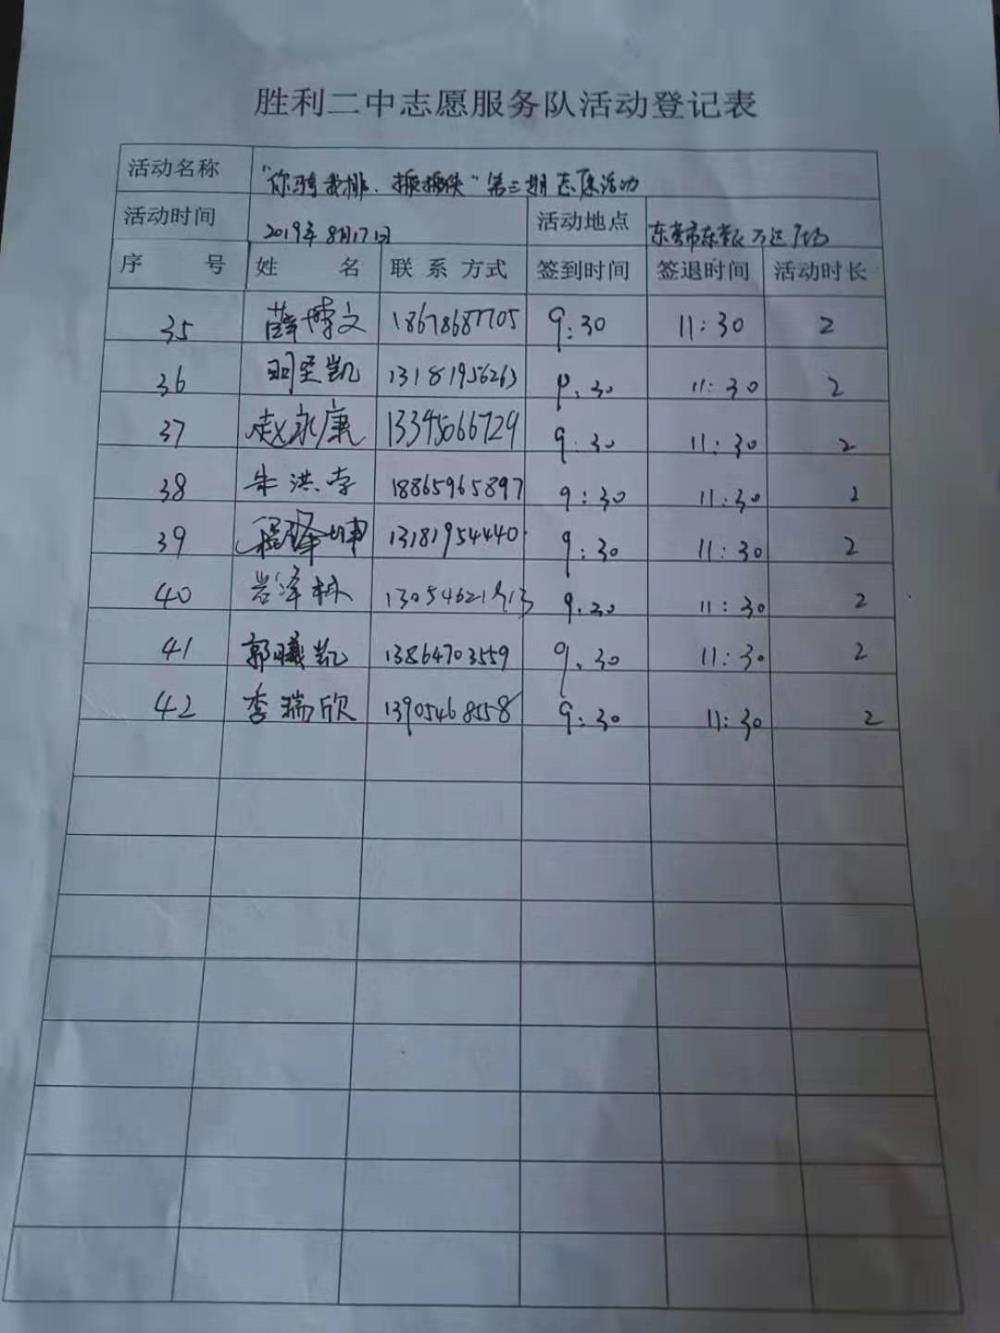 胜利二中志愿服务队活动登记表
活动名称 "你骑我排、 " 第三期志愿活动
活动时间 2019年8月17日 活动地点 东营市东营区万达广场
序号 姓名 联系方式 签到时间 签退时间 活动时长
35 薛博文 18678687705 9:30 11:30 2
36 凯 13181956263 9:30 11:30 2
37 赵永康 13345066729 9:30 11:30 2
38 朱洪 18865965897 9:30 11:30 2
39 程泽坤 13181954440 9:30 11:30 2
40 泽林 9:30 11:30 2
41 郭曦凯 13864703559 9:30 11:30 2
42 李瑞欣 13905468558 9:30 11:30 2